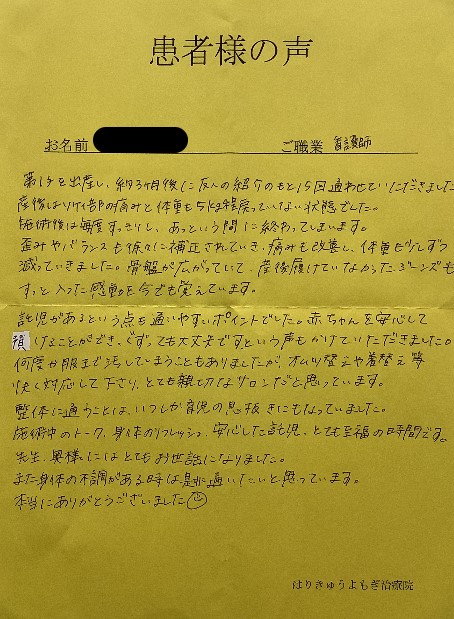 患者様の声
お名前 ご職業 看護師
第1子を出産し、約3ヶ月後に友人の紹介のもと15回通わせていただきました
産後はり付け部の痛みと体重も5kg程戻っていない状態でした。
施術後は毎度すっきりし、あっという間に終わってしまいます。
歪みやバランスも徐々に補正されていき、痛みも改善し、体重も少しずつ
減っていきました。骨盤が広がっていて、産後履けていなかったジーンズも
すっと入った感動を今でも覚えています。
託児があるという点も通いやすいポイントでした。赤ちゃんを安心して
預けることができ、ぐずっても大丈夫ですという声もかけていただきました。
何度か服まで汚してしまうこともありましたが、オムツ替えや着替え等
快く対応して下さり、とても親切なサロンだと思っています。
整体に通うことは、いつしか育児の息抜きにもなっていました。
施術中のトーク、身体のリフレッシュ、安心した託児、とても至福の時間です。
先生、奥様にはとてもお世話になりました。
また身体の不調がある時は是非通いたいと思っています。
本当にありがとうございました
はりきゅうよもぎ治療院